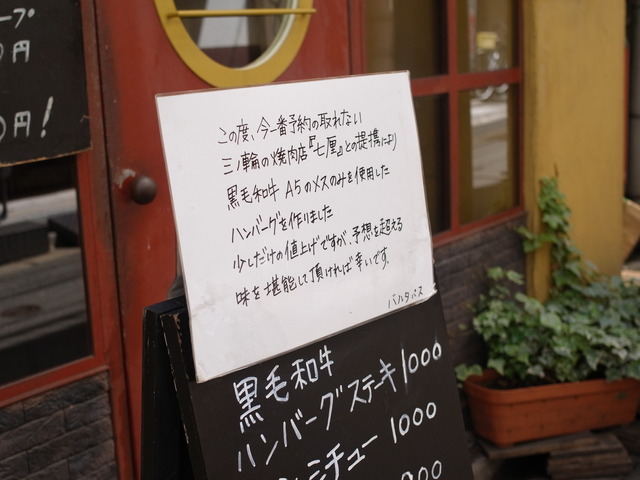 プ
円
円!
この度、今一番予約の取れない
三ノ輪の焼肉店『七厘』との提携により
黒毛和牛 A5のメスのみを使用した
ハンバーグを作りました
少しだけの値上げですが、予想を超える
味を堪能して頂ければ幸いです。
バルタバス
黒毛和牛
ハンバーグステキ1000
ンミチュー 1000